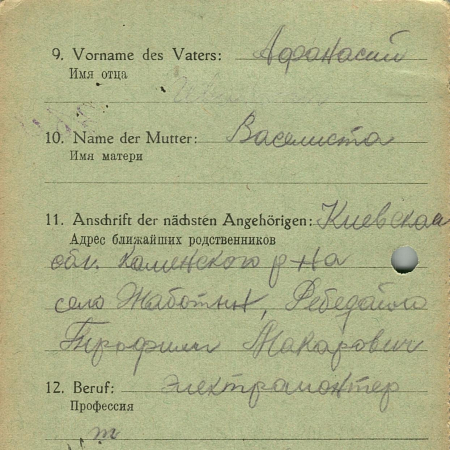 9. Vorname des Vaters: Афанасий
Имя отца
10. Name der Mutter: Васелиста
Имя матери
11. Anschrift der nächsten Angehörigen: Киевская
Адрес ближайших родственников
обл. Каменского р-на
село Жаботин, Лебедайло
Трофим Макарович
12. Beruf: электромонтер
Профессия